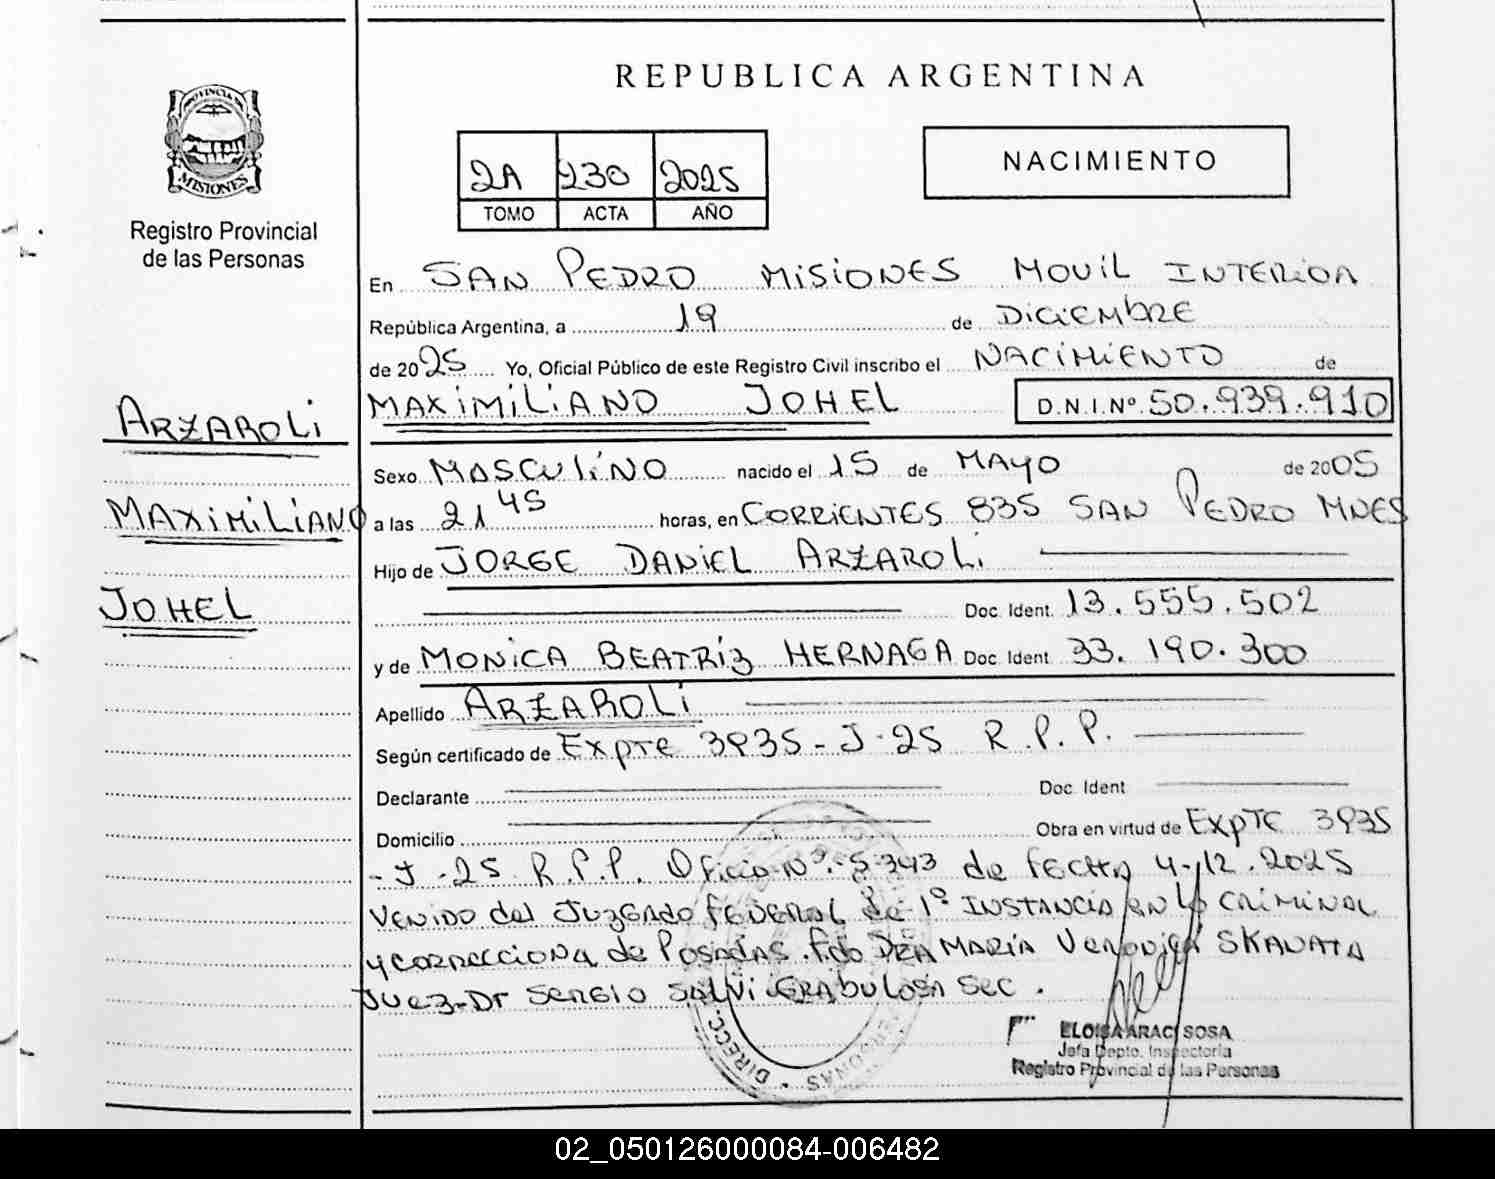 REPUBLICA ARGENTINA
PROVINCIA DE
MISIONES
Registro Provincial
de las Personas
2A 230 2025
TOMO ACTA AÑO
NACIMIENTO
En SAN PEDRO MISIONES MOVIL INTERIOR
República Argentina, a 19 de DICIEMBRE
de 2025 Yo, Oficial Público de este Registro Civil inscribo el NACIMIENTO de
MAXIMILIANO JOHEL D.N.I.Nº 50.939.910
ARZAROLI
MAXIMILIANO
JOHEL
Sexo MASCULINO nacido el 15 de MAYO de 2005
a las 21 45 horas, en CORRIENTES 835 SAN PEDRO MNES
Hijo de JORGE DANIEL ARZAROLI
Doc. Ident. 13.555.502
y de MONICA BEATRIZ HERNAGA Doc. Ident. 33.190.300
Apellido ARZAROLI
Según certificado de EXPTE 3935-J-25 R.P.P.
Declarante Doc. Ident
Domicilio Obra en virtud de EXPTE 3935
-J-25 R.P.P. Oficio Nº 5343 de fecha 4-12.2025
VENIDO del JUZGADO FEDERAL de 1º INSTANCIA EN LO CRIMINAL
y CORRECCIONA de POSADAS. fdo DRA MARIA VERONICA SKANATA
JUEZ-Dr SERGIO SALVI GRABULOSA SEC.
DIRECC. PERSONAS
ELOISA ARACI SOSA
Jefa Depto. Inspectoria
Registro Provincial de las Personas
02_050126000084-006482